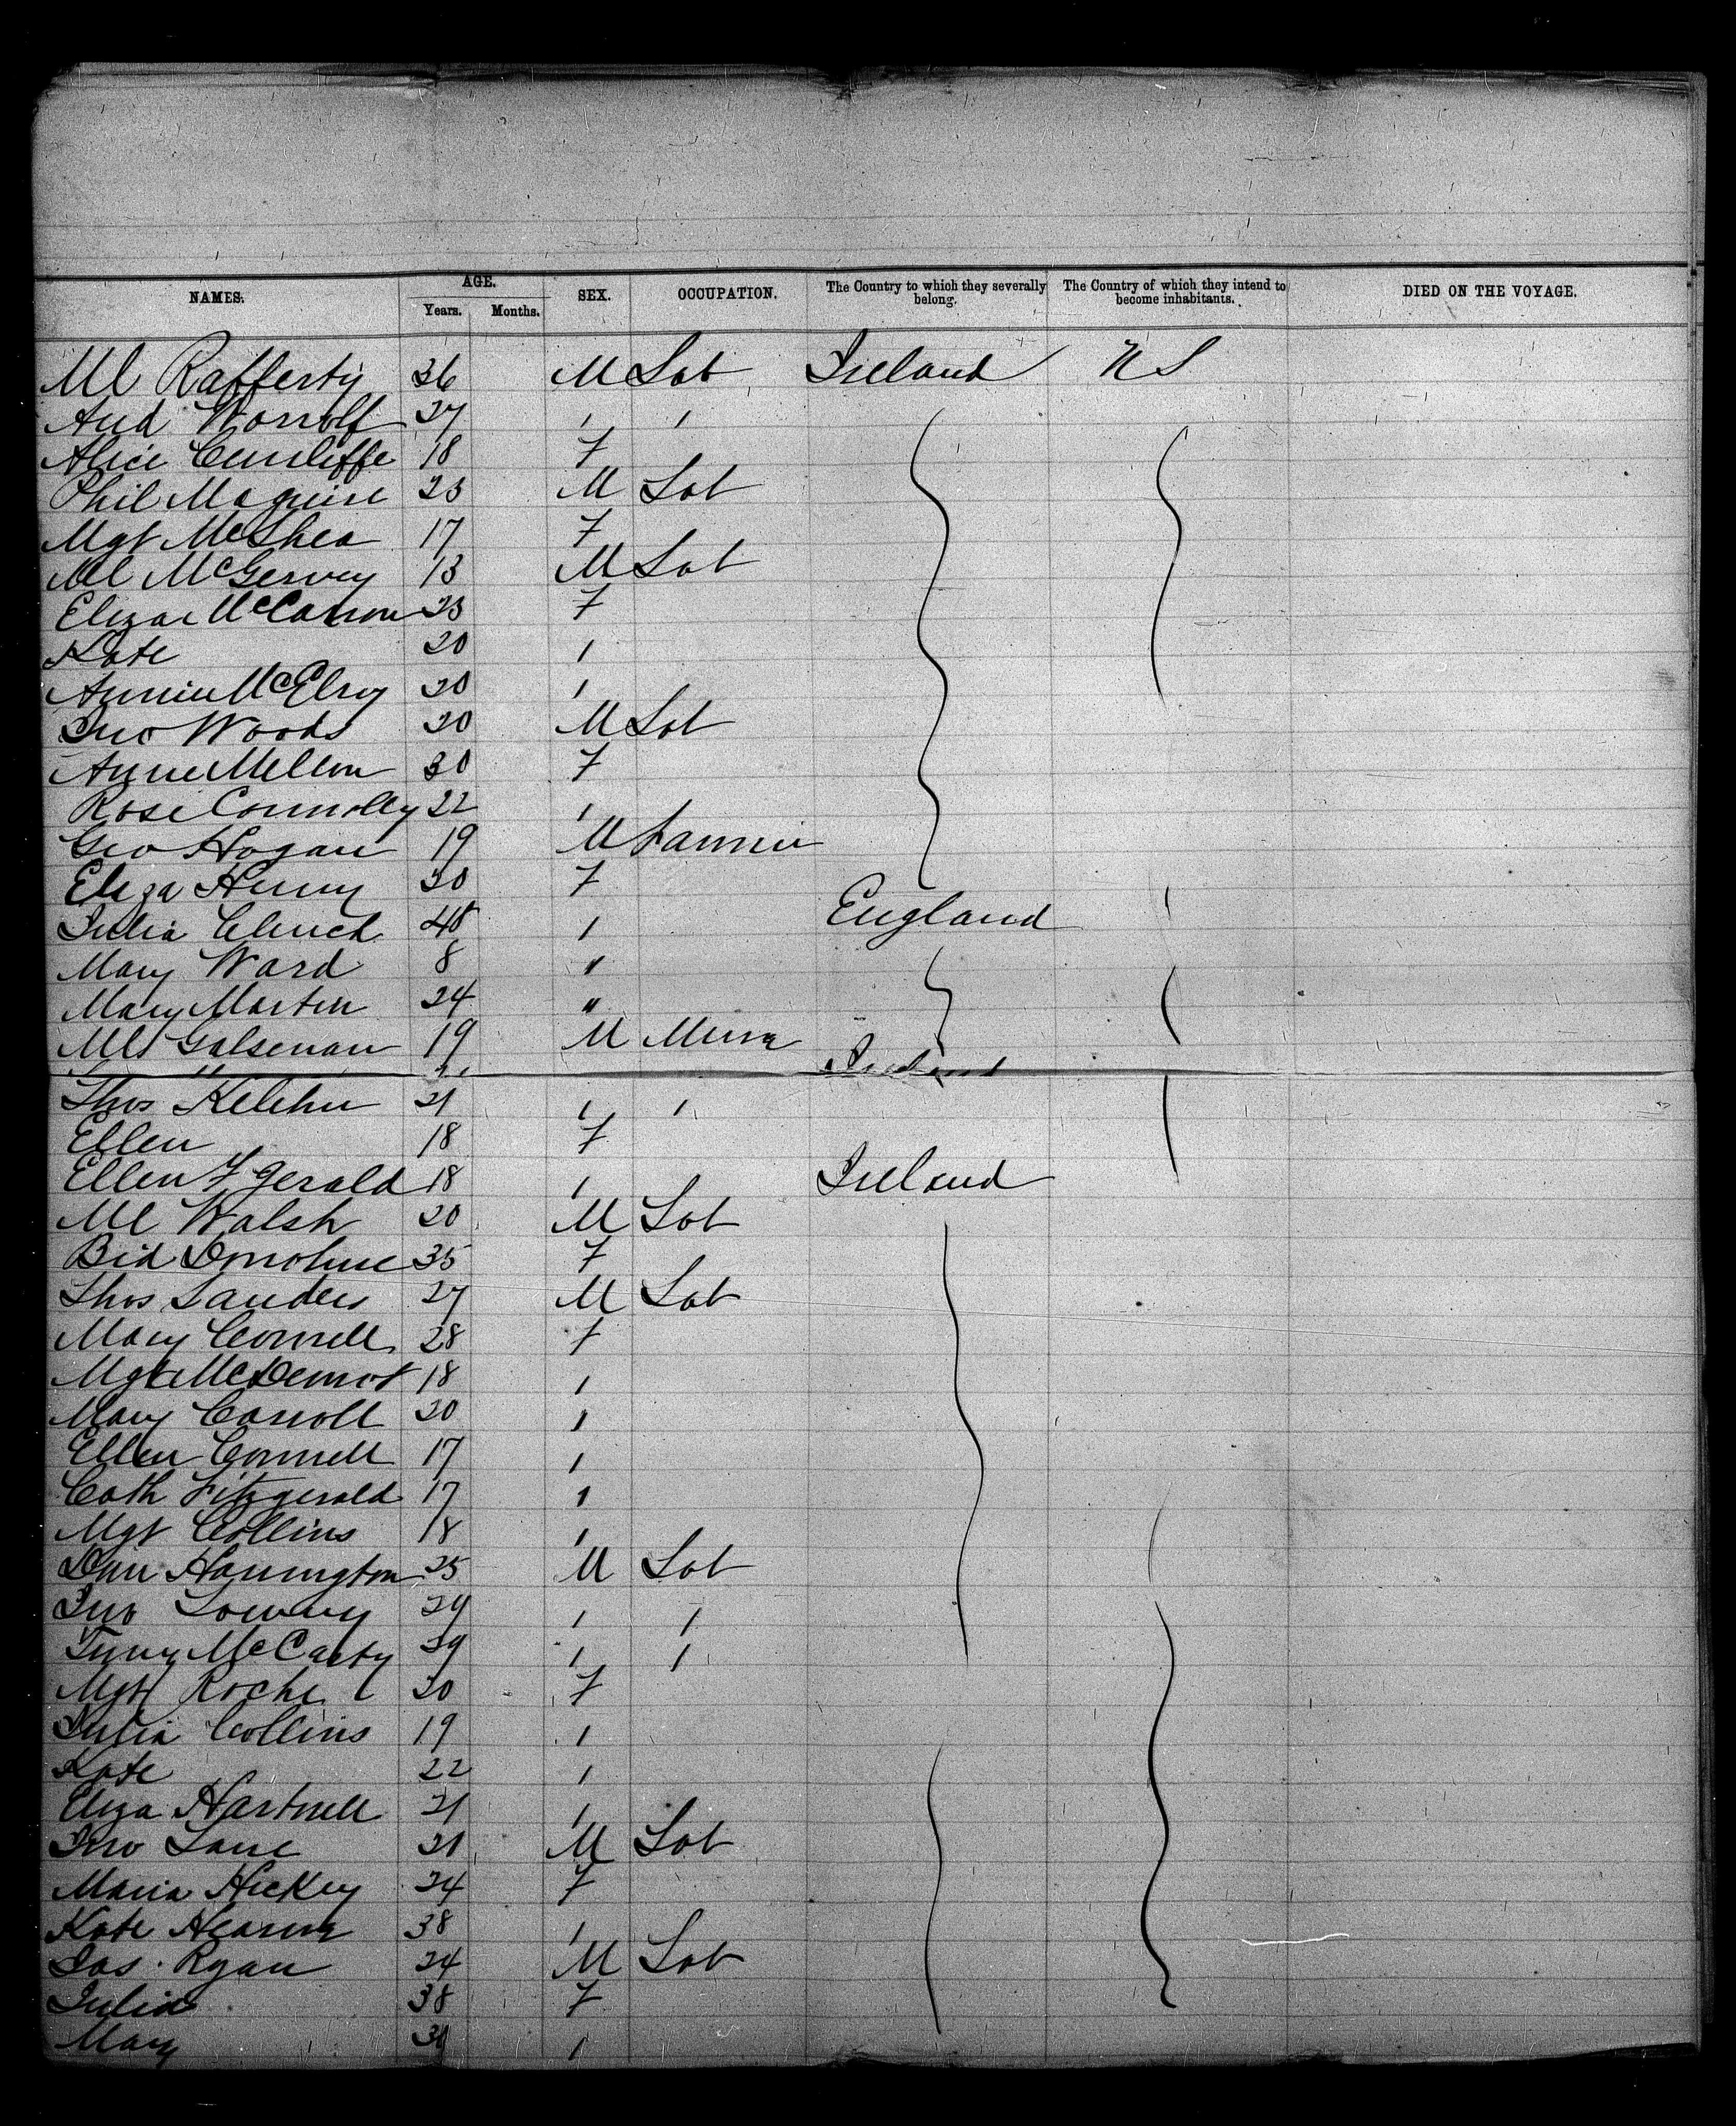 NAMES. AGE. SEX. OCCUPATION. The Country to which they severally belong. The Country of which they intend to become inhabitants. DIED ON THE VOYAGE.
Years. Months.
Ml Rafferty 36 M Lab Ireland U S
And Worrolf 27 " "
Alice Cunliffe 18 F
Phil Maguire 23 M Lab
Mgt McShea 17 F
Ml McGervey 13 M Lab
Eliza McCarron 23 F
Kate 20 "
Annie McElroy 20 "
Jno Woods 20 M Lab
Anne Mellon 30 F
Rose Connolly 22 "
Geo Hogan 19 M Farmer
Eliza Henry 20 F
Julia Clinch 48 " England
Mary Ward 8 "
Mary Martin 24 "
Ml 19 M Ireland
Thos Kelcher 21 " "
Ellen 18 F
Ellen F Gerald 18 " Ireland
Ml Walsh 20 M Lab
Bid Donohue 35 F
Thos Sanders 27 M Lab
Mary Connell 28 F
Mgt McDermot 18 "
Mary Carroll 20 "
Ellen Connell 17 "
Cath Fitzgerald 17 "
Mgt Collins 18 "
Dan Harrington 25 M Lab
Jno Lowney 24 " "
Timy McCarty 29 " "
Mgt Roche 20 F
Julia Collins 19 "
Kate 22 "
Eliza Hartnell 21 "
Jno Lane 21 M Lab
Maria Hickey 24 F
Kate 38 "
Jas. Ryan 24 M Lab
Julia 38 F
Mary "